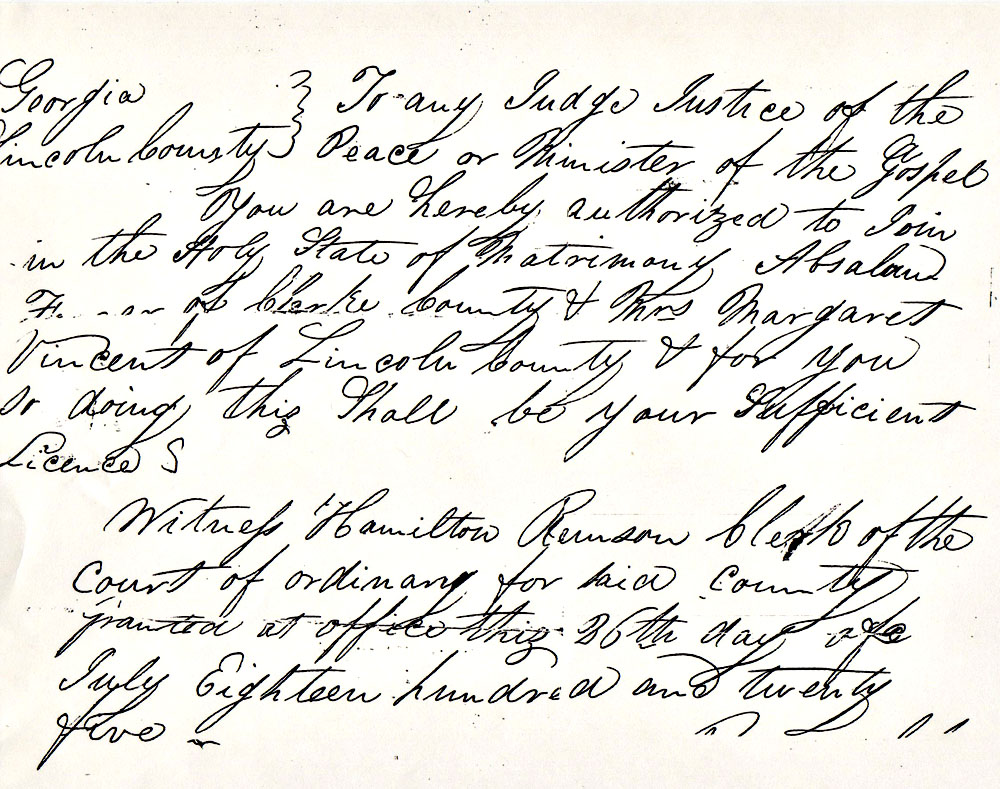 Georgia } To any Judge Justice of the
Lincoln County } Peace or Minister of the Gospel
You are hereby authorized to Join
in the Holy State of Matrimony Absalom
of Clarke County & Mrs Margaret
Vincent of Lincoln County & for you
so doing this Shall be your Sufficient
Licence S
Witness Hamilton Remson Clerk of the
Court of ordinary for said County
granted at office this 26th day of
July Eighteen hundred and twenty
five